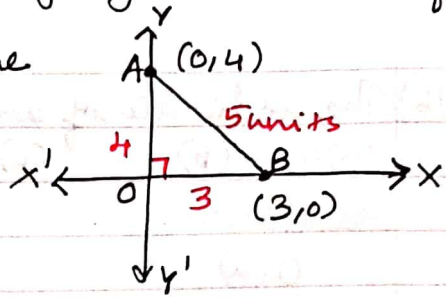 Y
e
A (0,4)
5 units
4
B
X' O 3 X
(3,0)
Y'